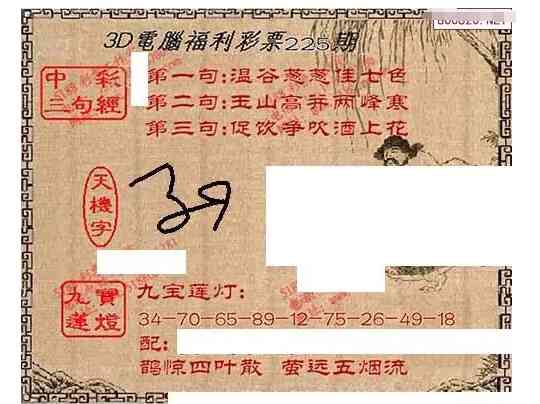 3D電腦福利彩票225期
中彩
三句經
第一句:温谷葱葱佳七色
第二句:玉山高并两峰寒
第三句:促饮争吹酒上花
天機字
39
九寶
蓮燈
九宝莲灯:
34-70-65-89-12-75-26-49-18
配:
鹊惊四叶散 萤远五烟流